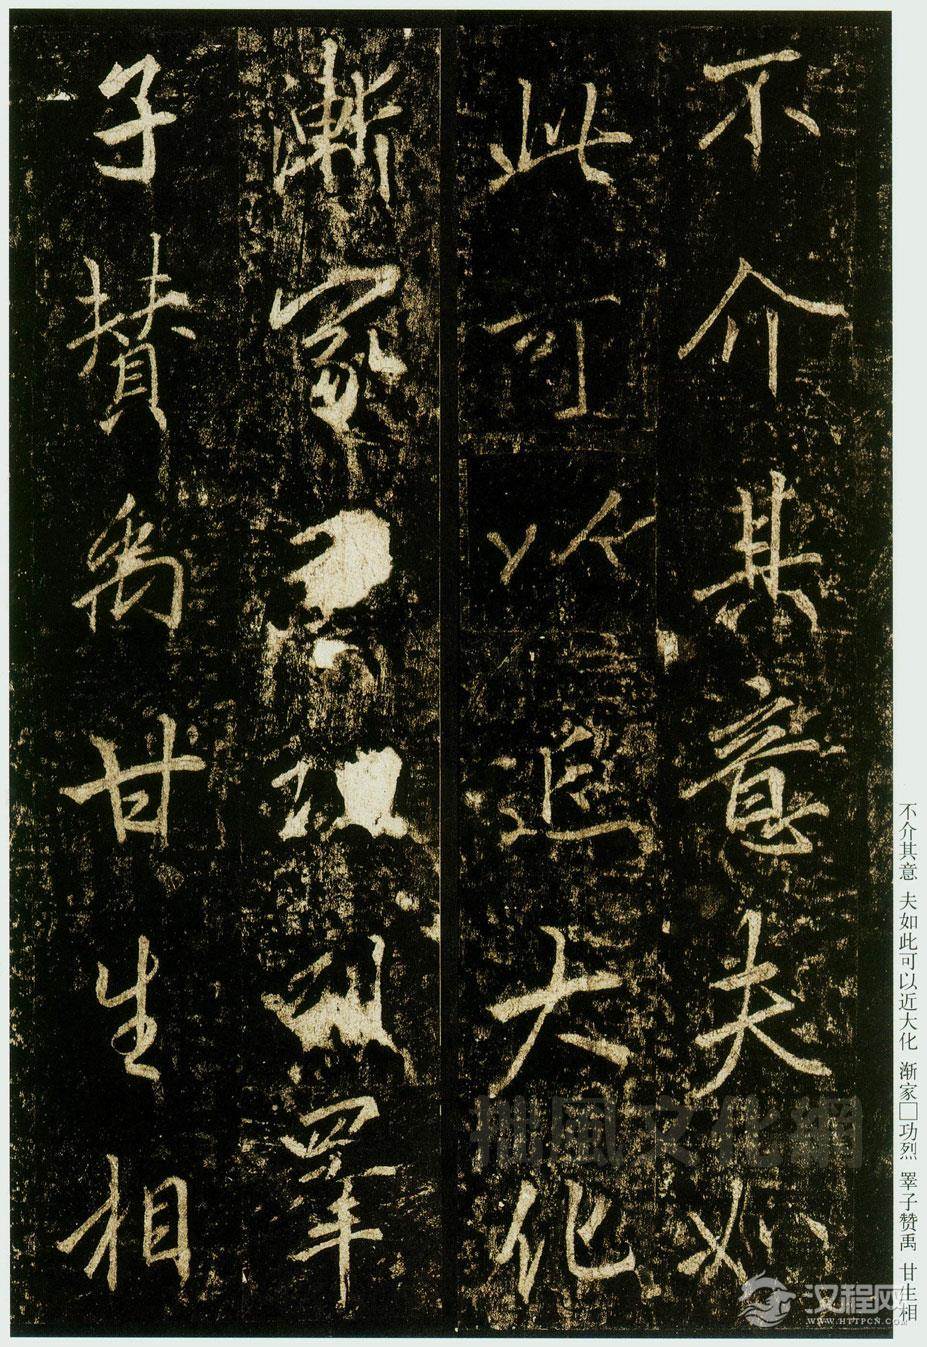 不介其意夫如
此可以近大化
漸家功列睪
子贊禹甘生相
不介其意 夫如此可以近大化 渐家□功烈 睪子赞禹 甘生相
拙風文化網
汉程网
WWW.HTTPCN.COM